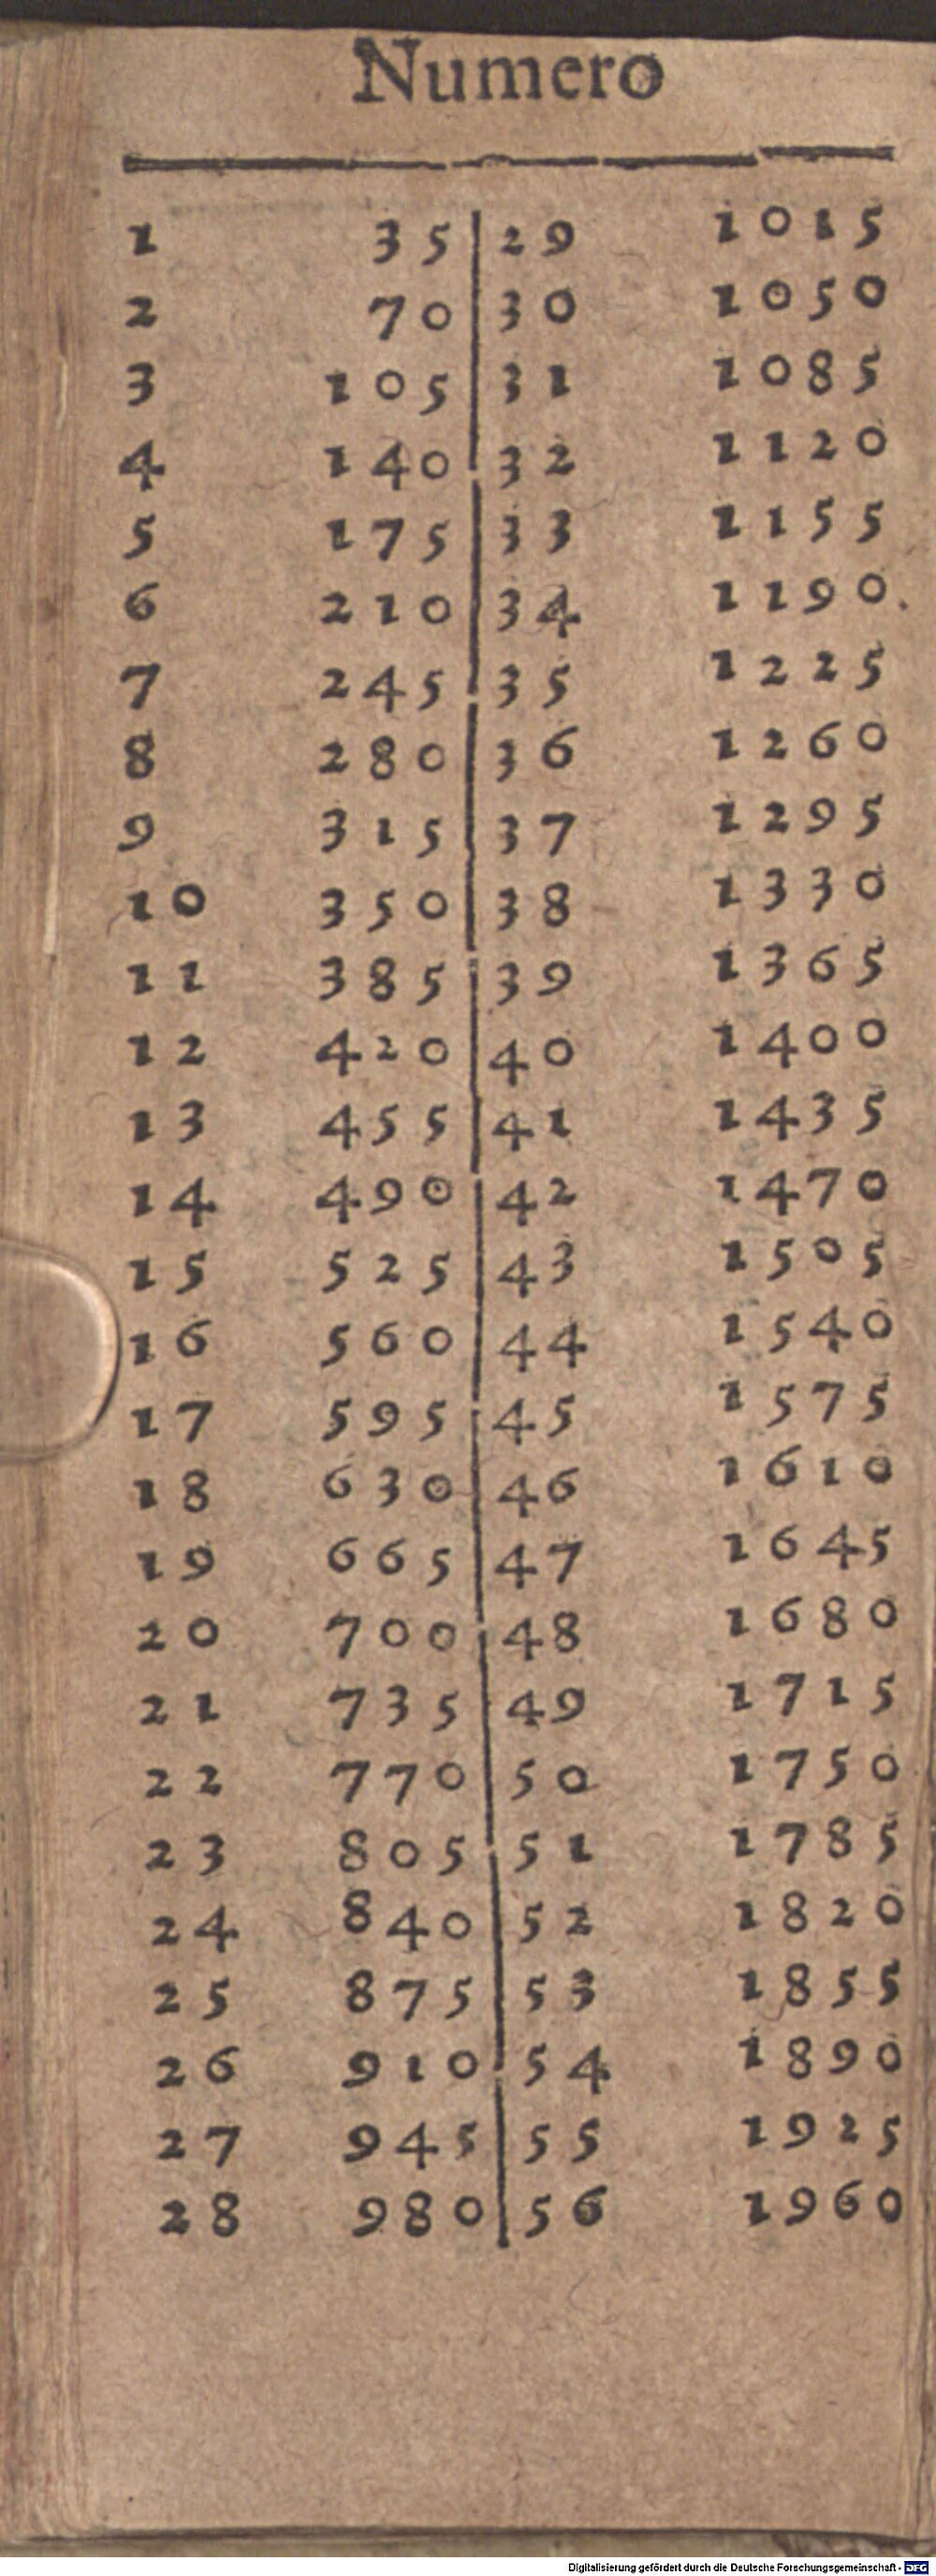 Numero
1 35 29 1015
2 70 30 1050
3 105 31 1085
4 140 32 1120
5 175 33 1155
6 210 34 1190.
7 245 35 1225
8 280 36 1260
9 315 37 1295
10 350 38 1330
11 385 39 1365
12 420 40 1400
13 455 41 1435
14 490 42 1470
15 525 43 1505
16 560 44 1540
17 595 45 1575
18 630 46 1610
19 665 47 1645
20 700 48 1680
21 735 49 1715
22 770 50 1750
23 805 51 1785
24 840 52 1820
25 875 53 1855
26 910 54 1890
27 945 55 1925
28 980 56 1960
Digitalisierung gefördert durch die Deutsche Forschungsgemeinschaft - DFG